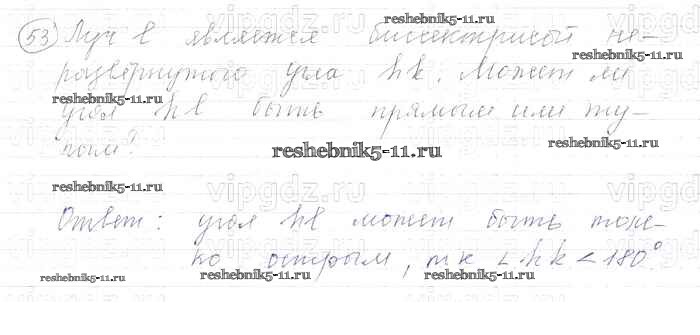 53 Луч l является биссектрисой не-
развёрнутого угла hk. Может ли
угол hl быть прямым или ту-
пым?
Ответ: угол hl может быть толь-
ко острым, т.к ∠hk < 180°.
reshebnik5-11.ru
reshebnik5-11.ru
reshebnik5-11.ru
reshebnik5-11.ru
reshebnik5-11.ru
reshebnik5-11.ru
reshebnik5-11.ru
reshebnik5-11.ru
reshebnik5-11.ru
vipgdz.ru
vipgdz.ru
vipgdz.ru